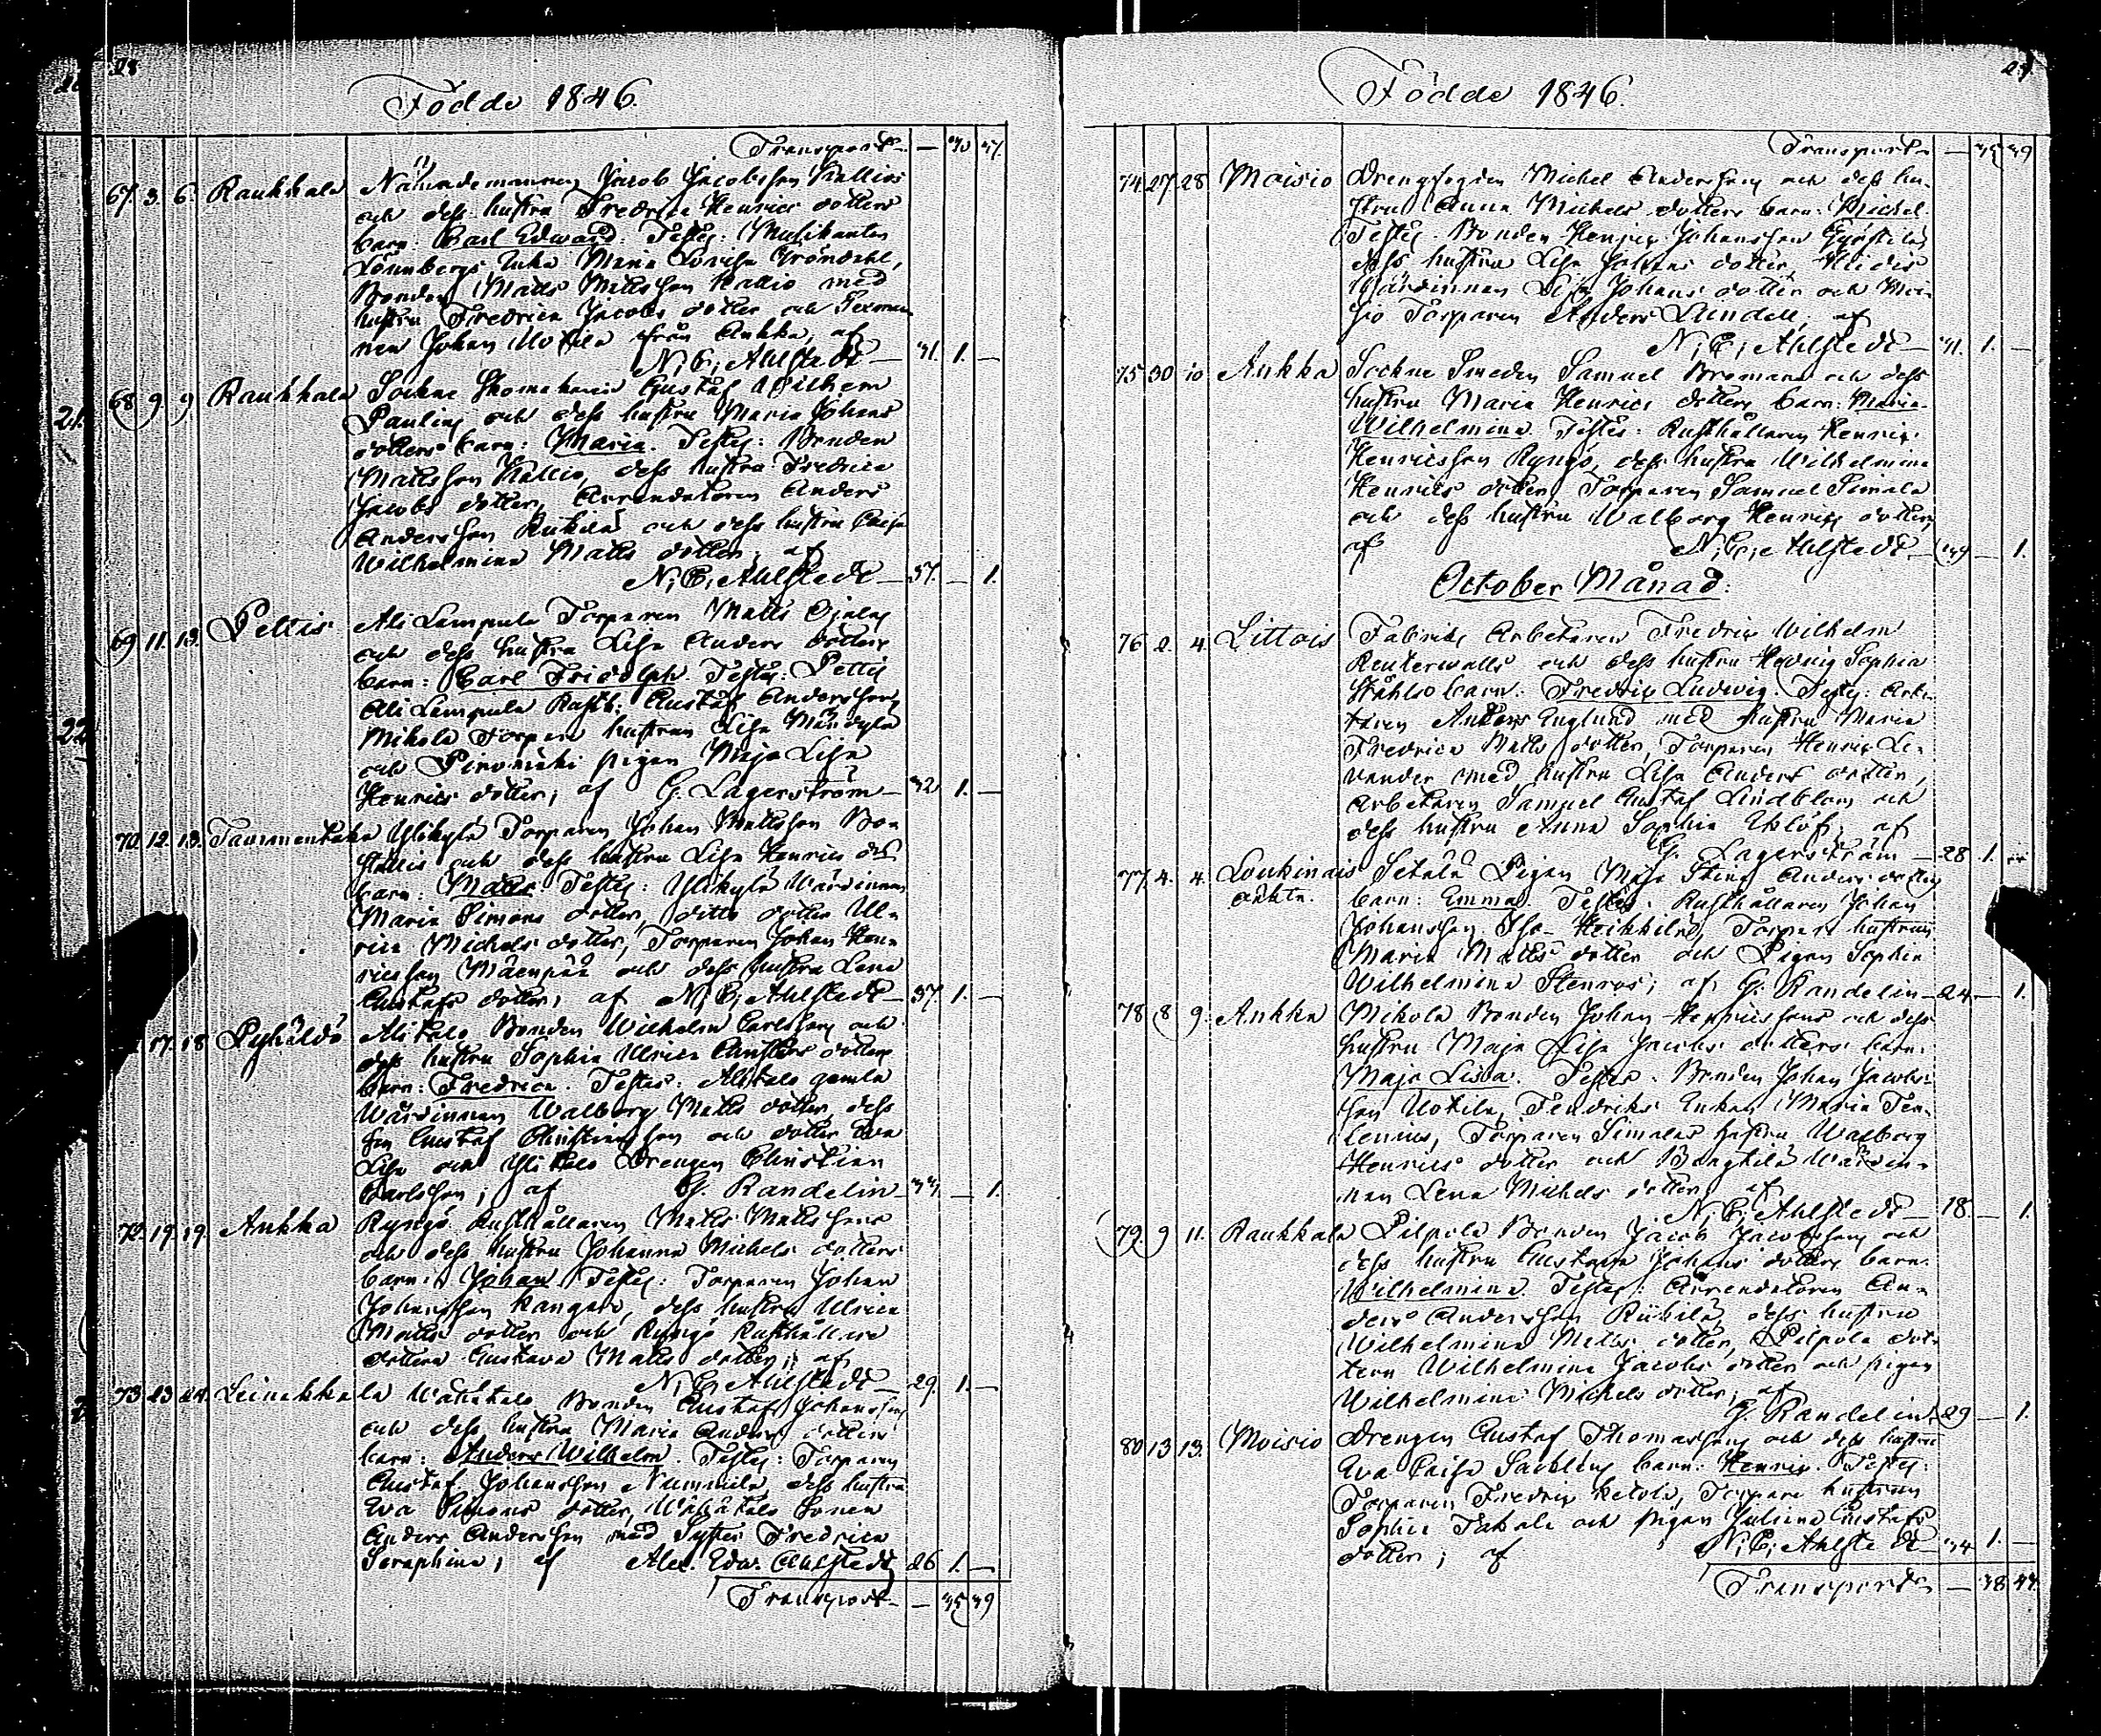 28
Födde 1846.
Transport — 40 47.
67. 3. 6. Raukkala Nämndemannen Jacob Jacobsson Kallios
och dess hustru Fredrica Henrics dotters
barn: Carl Edward. Testes: Musikanten
Lönnbergs Enka Maria Lovisa Gröndahl,
Bonden Matts Mattsson Kallio med
hustru Fredrica Jacobs dotter och Sexman
nen Johan Uotila från Ankka; af
N: C: Ahlstedt — 41. 1. —
68 9 9 Raukkala Sockne Skomakaren Gustaf Wilhelm
Paulins och dess hustru Maria Johans
dotters barn: Maria. Testes: Bonden
Mattsson Kallio, dess hustru Fredrica
Jacobs dotter, Arrendatoren Anders
Andersson Riihilä och dess hustru Caisa
Wilhelmina Matts dotter; af
N: C: Ahlstedt — 37. — 1.
69 11. 13. Peltis Ali Lempula Torparen Matts Ojalas
och dess hustru Lisa Anders dotters
barn: Carl Fridolph. Testes: Peltis
Ali Lempula Rusth: Gustaf Andersson,
Mikola Torpare hustrun Lisa
och pigan Maja Lisa
Henrics dotter; af G. Lagerström — 32 1. —
70. 12. 13. Tammentaka Ylikylä Torparen Johan Mattsson
och dess hustru Lisa Henrics d:rs
barn: Matts. Testes: Ylikylä Wärdinnan
Maria Simons dotter, ditto dotter Ul-
rica Michels dotter, Torparen Johan Hen-
ricsson Mäenpää och dess hustru Lena
Gustafs dotter; af N: C: Ahlstedt — 37. 1. —
17. 18 Pyhältö Alitalo Bonden Wilhelm Carlssons och
dess hustru Sophia Ulrica Gustafs dotters
barn: Fredrica. Testes: Alitalo gamla
Wärdinnan Walborg Matts dotter, dess
son Gustaf Christiansson och dotter Eva
Lisa och Ylitalo Drengen Christian
Carlsson; af G. Randelin — 44. — 1.
72. 19. 19. Ankka Ryngö Rusthållaren Matts Mattssons
och dess hustru Johanna Michels dotters
barn: Johan Testes: Torparen Johan
Johansson Kangare, dess hustru Ulrica
Matts dotter och Ryngö Rusthållare
dottern Gustava Matts dotter; af
N: C: Ahlstedt — 29. 1. —
73. 23 24. Leinakkala Wähätalo Bonden Gustaf Johanssons
och dess hustru Maria Anders dotters
barn: Anders Wilhelm. Testes: Torparen
Gustaf Johansson Nummila, dess hustru
Eva Simons dotter, Wähätalo Sonen
Anders Andersson med Syster Fredrica
Seraphina; af Alex. Edw. Ahlstedt 26 1. —
Transport — 45 49
29.
Födde 1846.
Transport — 45 49
74. 27. 28 Moisio Drengfogden Michel Anderssons och dess hu-
stru Anna Michels dotters barn: Michel.
Testes. Bonden Henric Johansson
dess hustru Lisa Johans dotter,
Wärdinnan Lisa Johans dotter och Moi-
sio Torparen Anders Lundell; af
N: C: Ahlstedt — 41. 1. —
75 30 10 Ankka Sockne Smeden Samuel Bromans och dess
hustru Maria Henrics dotters barn: Maria
Wilhelmina Testes: Rusthållaren Henric
Henricsson Ryngö, dess hustru Wilhelmina
Henrics dotter, Torparen Samuel Simala
och dess hustru Walborg Henrics dotter;
af N: C: Ahlstedt — 44 — 1.
October Månad:
76 2. 4. Littois Fabriks Arbetaren Fredric Wilhelm
Reuterwalls och dess hustru Hedvig Sophia
Ståhls barn: Fredric Ludwig. Testes: Arbe-
taren Anders Englund med hustru Maria
Fredrica Matts dotter, Torparen Henric Le-
vander med hustru Lisa Anders dotter,
Arbetaren Samuel Gustaf Lindblom och
dess hustru Anna Sophia Uhlöf; af
G. Lagerström — 28. 1. —
77. 4. 4. Loukinais Setälä Pigan Maja Stina Anders dotters
oäkta. barn: Emma. Testes: Rusthållaren Johan
Johansson Iso-Heikkilä, Torpare hustrun
Maria Matts dotter och Pigan Sophia
Wilhelmina Stenros; af G. Randelin — 24 — 1.
78 8 9. Ankka Mikola Bonden Johan Henricssons och dess
hustru Maja Lisa Jacobs dotters barn:
Maja Lisa. Testes. Bonden Johan Jacobs-
son Uotila, Fendriks Enkan Maria
Torparen Simalas hustru Walborg
Henrics dotter och Wärdin-
nan Lena Michels dotter; af
N: C: Ahlstedt — 18. — 1.
79. 9 11. Raukkala Pilpola Bonden Jacob Jacobssons och
dess hustru Gustava Johans dotters barn:
Wilhelmina. Testes: Arrendatoren An-
ders Andersson Riihilä, dess hustru
Wilhelmina Matts dotter, Pilpola dot-
tern Wilhelmina Jacobs dotter och pigan
Wilhelmina Michels dotter; af
G. Randelin — 29 — 1.
80 13 13. Moisio Drengen Gustaf Thomassons och dess hustru
Eva Caisa barn: Henric. Testes:
Torparen Fredric Ketola, Torpare hustrun
Sophia Takala och pigan Juliana Gustafs
dotter; af N: C: Ahlstedt — 34 1. —
Transport — 48 54.